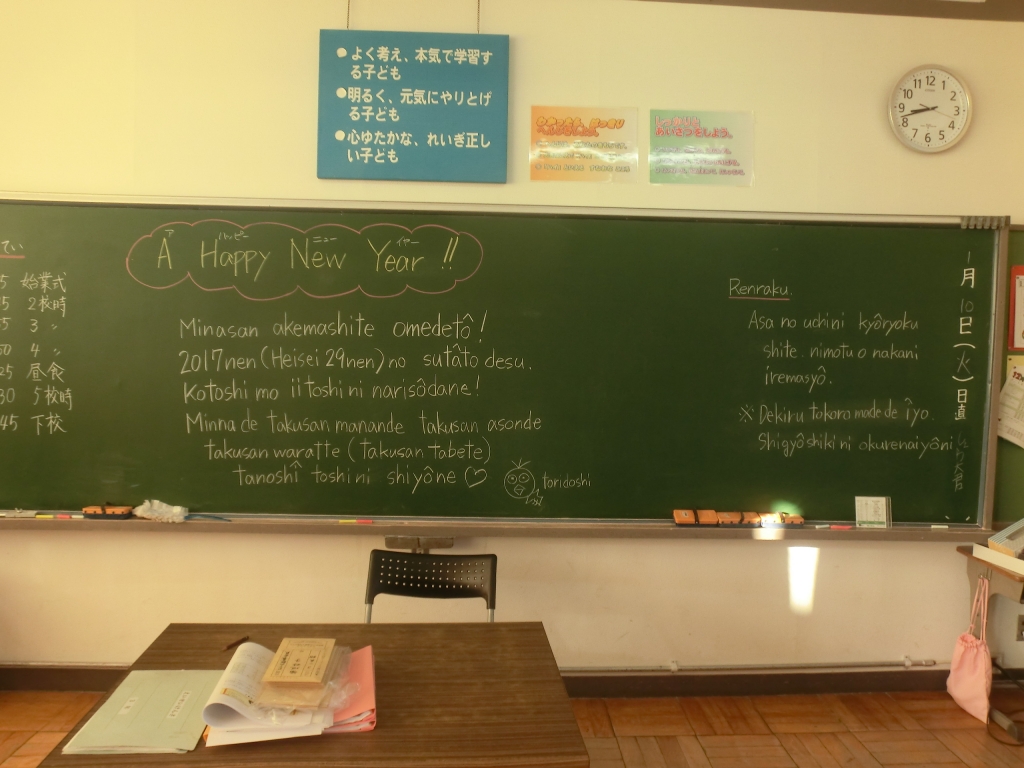 ●よく考え、本気で学習す
る子ども
●明るく、元気にやりとげ
る子ども
●心ゆたかな、れいぎ正し
い子ども
あいさつをしよう。
12
1
2
3
4
5
6
7
8
9
10
11
ア ハッピー ニュー イヤー
A Happy New Year !!
Minasan akemashite omedetô!
2017nen (Heisei 29nen) no sutâto desu.
Kotoshi mo iitoshi ni narisôdane!
Minna de takusan manande takusan asonde
takusan waratte (takusan tabete)
tanoshî toshi ni shiyône ♡
toridoshi
5 始業式
5 2校時
5 3 〃
50 4 〃
25 昼食
30 5校時
45 下校
Renraku.
Asa no uchini kyôryoku
shite. nimotu o nakani
iremasyô.
※ Dekiru tokoro made de îyo.
Shigyôshiki ni okurenaiyôni
1月10日(火)日直